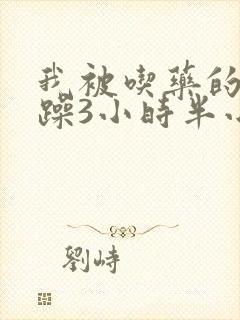 我被喫藥的
躁3小時半小
劉峙